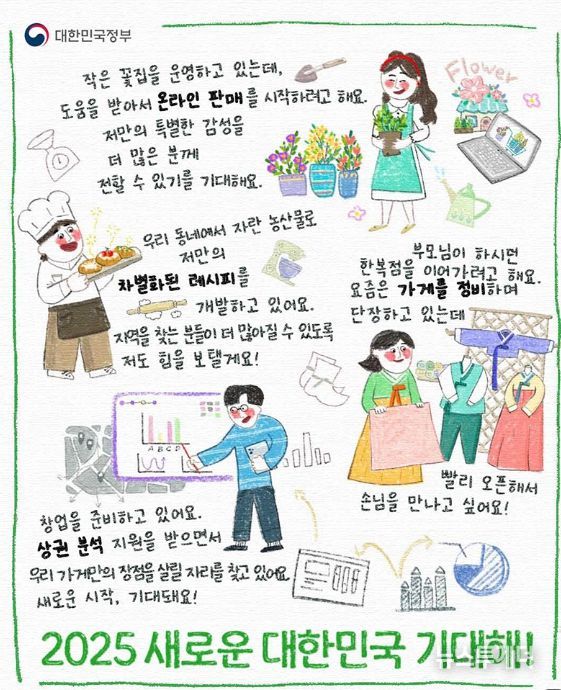 대한민국정부
작은 꽃집을 운영하고 있는데,
도움을 받아서 온라인 판매를 시작하려고 해요.
저만의 특별한 감성을
더 많은 분께
전할 수 있기를 기대해요.
Flower
우리 동네에서 자란 농산물로
저만의
차별화된 레시피를
개발하고 있어요.
지역을 찾는 분들이 더 많아질 수 있도록
저도 힘을 보탤게요!
부모님이 하시던
한복점을 이어가려고 해요.
요즘은 가게를 정비하며
단장하고 있는데
빨리 오픈해서
손님을 만나고 싶어요!
A B C D
창업을 준비하고 있어요.
상권 분석 지원을 받으면서
우리 가게만의 장점을 살릴 자리를 찾고 있어요.
새로운 시작, 기대돼요!
2025 새로운 대한민국 기대해!